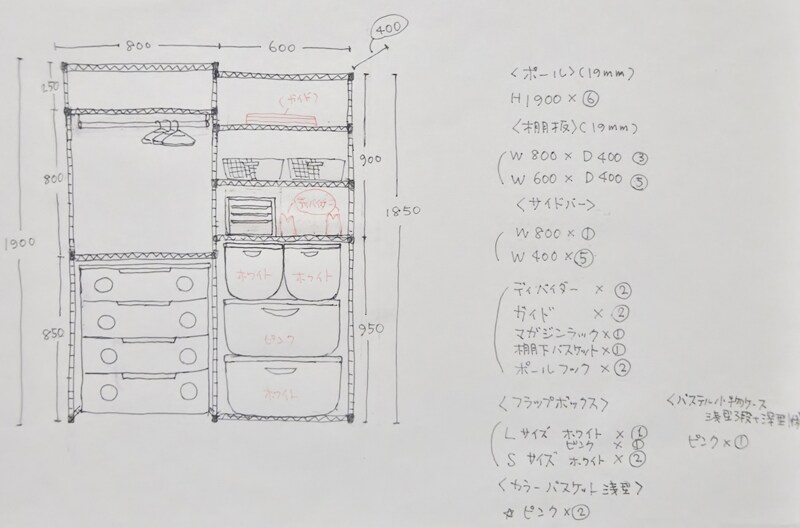 400
800
600
250
800
1900
850
900
1850
950
(ガイド)
ディバイダ
ホワイト
ホワイト
ピンク
ホワイト
〈ポール〉(19mm)
H1900×⑥
〈棚板〉(19mm)
W 800 × D 400 ③
W 600 × D 400 ⑤
〈サイドバー〉
W 800×①
W 400×⑤
ディバイダー ×②
ガイド ×②
マガジンラック×①
棚下バスケット×①
ポールフック×②
〈フラップボックス〉
Lサイズ ホワイト ×①
ピンク ×①
Sサイズ ホワイト ×②
〈カラーバスケット浅型〉
☆ピンク×②
〈パステル小物ケース
浅型3段 深型
ピンク×①